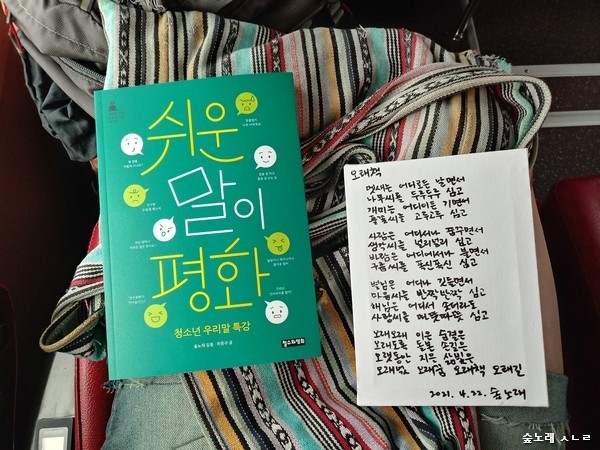 쉬운
말이
평화
청소년 우리말 특강
철수와영희
오래책
멧새는 어디로든 날면서
나무씨를 두루두루 심고
개미는 어디이든 기면서
풀꽃씨를 고루고루 심고
사람은 어디서나 꿈꾸면서
생각씨를 널리널리 심고
바람은 어디에서나 불면서
구름씨를 폭신폭신 심고
별님은 어디나 깃들면서
마음씨를 반짝반짝 심고
해님은 어디서 솟더라도
사랑씨를 따뜻따뜻 심고
오래오래 이은 숨결은
오래도록 돌본 손길은
오랫동안 지은 삶빛은
오래넋 오래숲 오래책 오래길
2021. 4. 22. 숲노래
숲노래 ㅅㄴㄹ